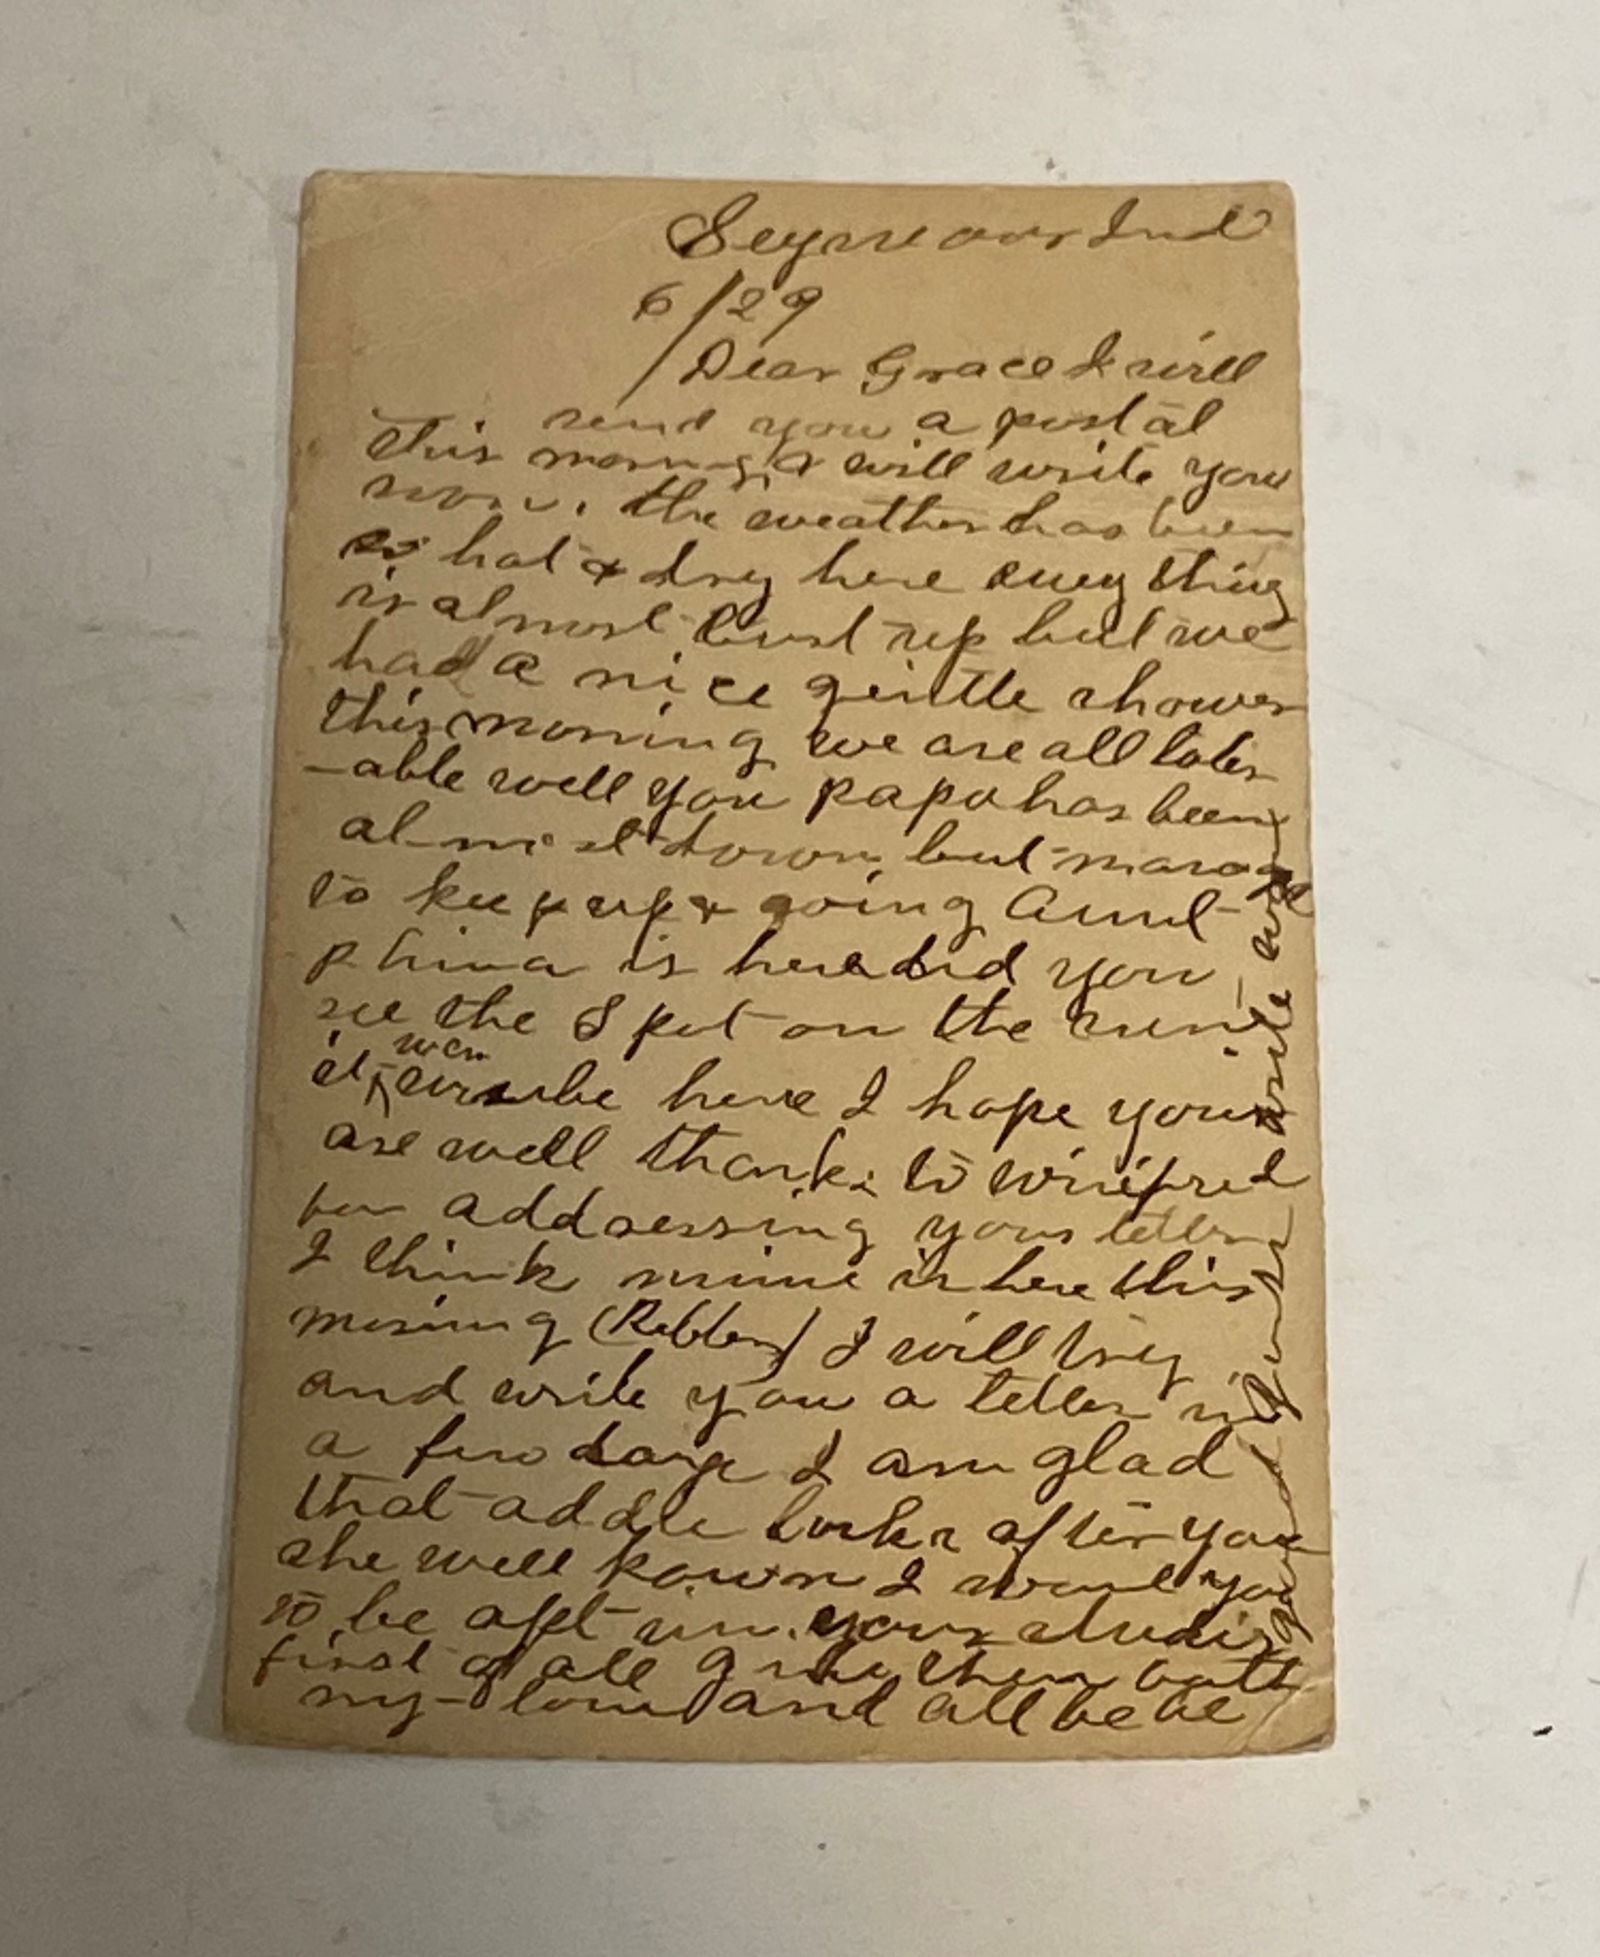 Seymour Ind
6/29
Dear Grace I will
send you a postal
this morning & will write you
soon. the weather has been
so hot & dry here every thing
is almost burnt up but we
had a nice gentle shower
this morning we are all toler
-able well you papa has been
almost down but manage
to keep up & going Aunt
phina is here did you
see the Spot on the sun
it was here I hope you
are well thanks to Winifred
for addressing your letter
I think mine is here this
morning (Robber) I will try
and write you a letter in
a few days I am glad
that addie looks after you
she well known I want you
to be apt in your studies
first of all give them both
my love and all be
good write